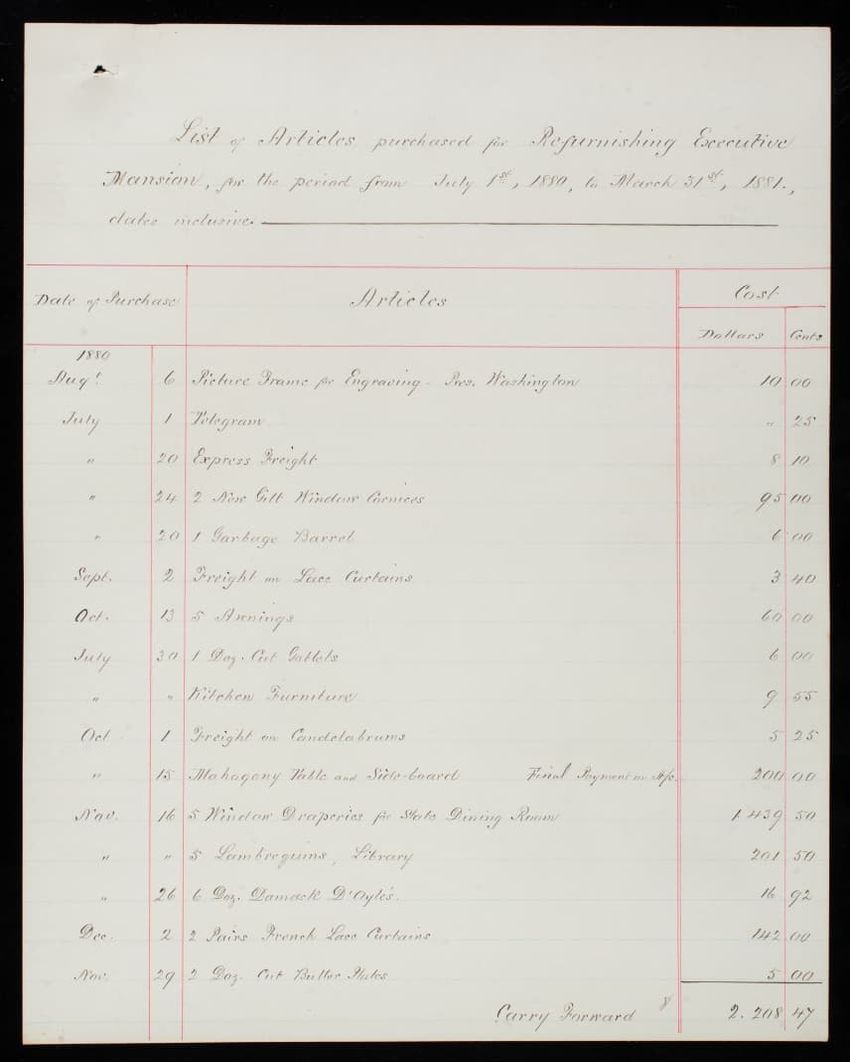 List of Articles purchased for Refurnishing Executive
Mansion, for the period from July 1st, 1880, to March 31st, 1881.,
dates inclusive.
Date of Purchase Articles Cost
Dollars Cents
1880
Augt. 6 Picture Frame for Engraving - Pres. Washington 10 00
July 1 Telegram " 25
" 20 Express Freight 8 10
" 24 2 New Gilt Window Cornices 95 00
" 20 1 Garbage Barrel 6 00
Sept. 2 Freight on Lace Curtains 3 40
Oct. 13 5 Awnings 60 00
July 30 1 Doz. Cut Goblets 6 00
" " Kitchen Furniture 9 55
Oct 1 Freight on Candelabrums 5 25
" 15 Mahogany Table and Side-board Final Payment on 200 00
Nov. 16 5 Window Draperies for State Dining Room 1.439 50
" " 5 Lambrequins, Library 201 50
" 26 6 Doz. Damask D'Oyles. 16 92
Dec. 2 2 Pairs French Lace Curtains 142 00
Nov. 29 2 Doz. Cut Butter Plates 5 00
Carry Forward $ 2.208 47